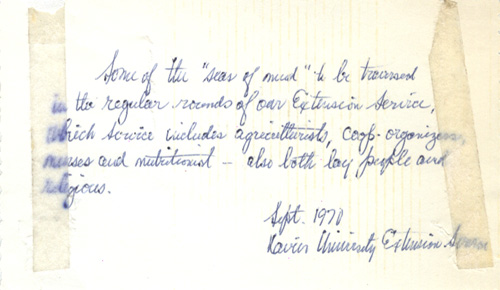 Some of the "seas of mud" to be traversed
in the regular rounds of our Extension Service,
which service includes agriculturists, coop-organizers,
nurses and nutritionist – also both lay people and
religious.
Sept. 1970
Xavier University Extension Service